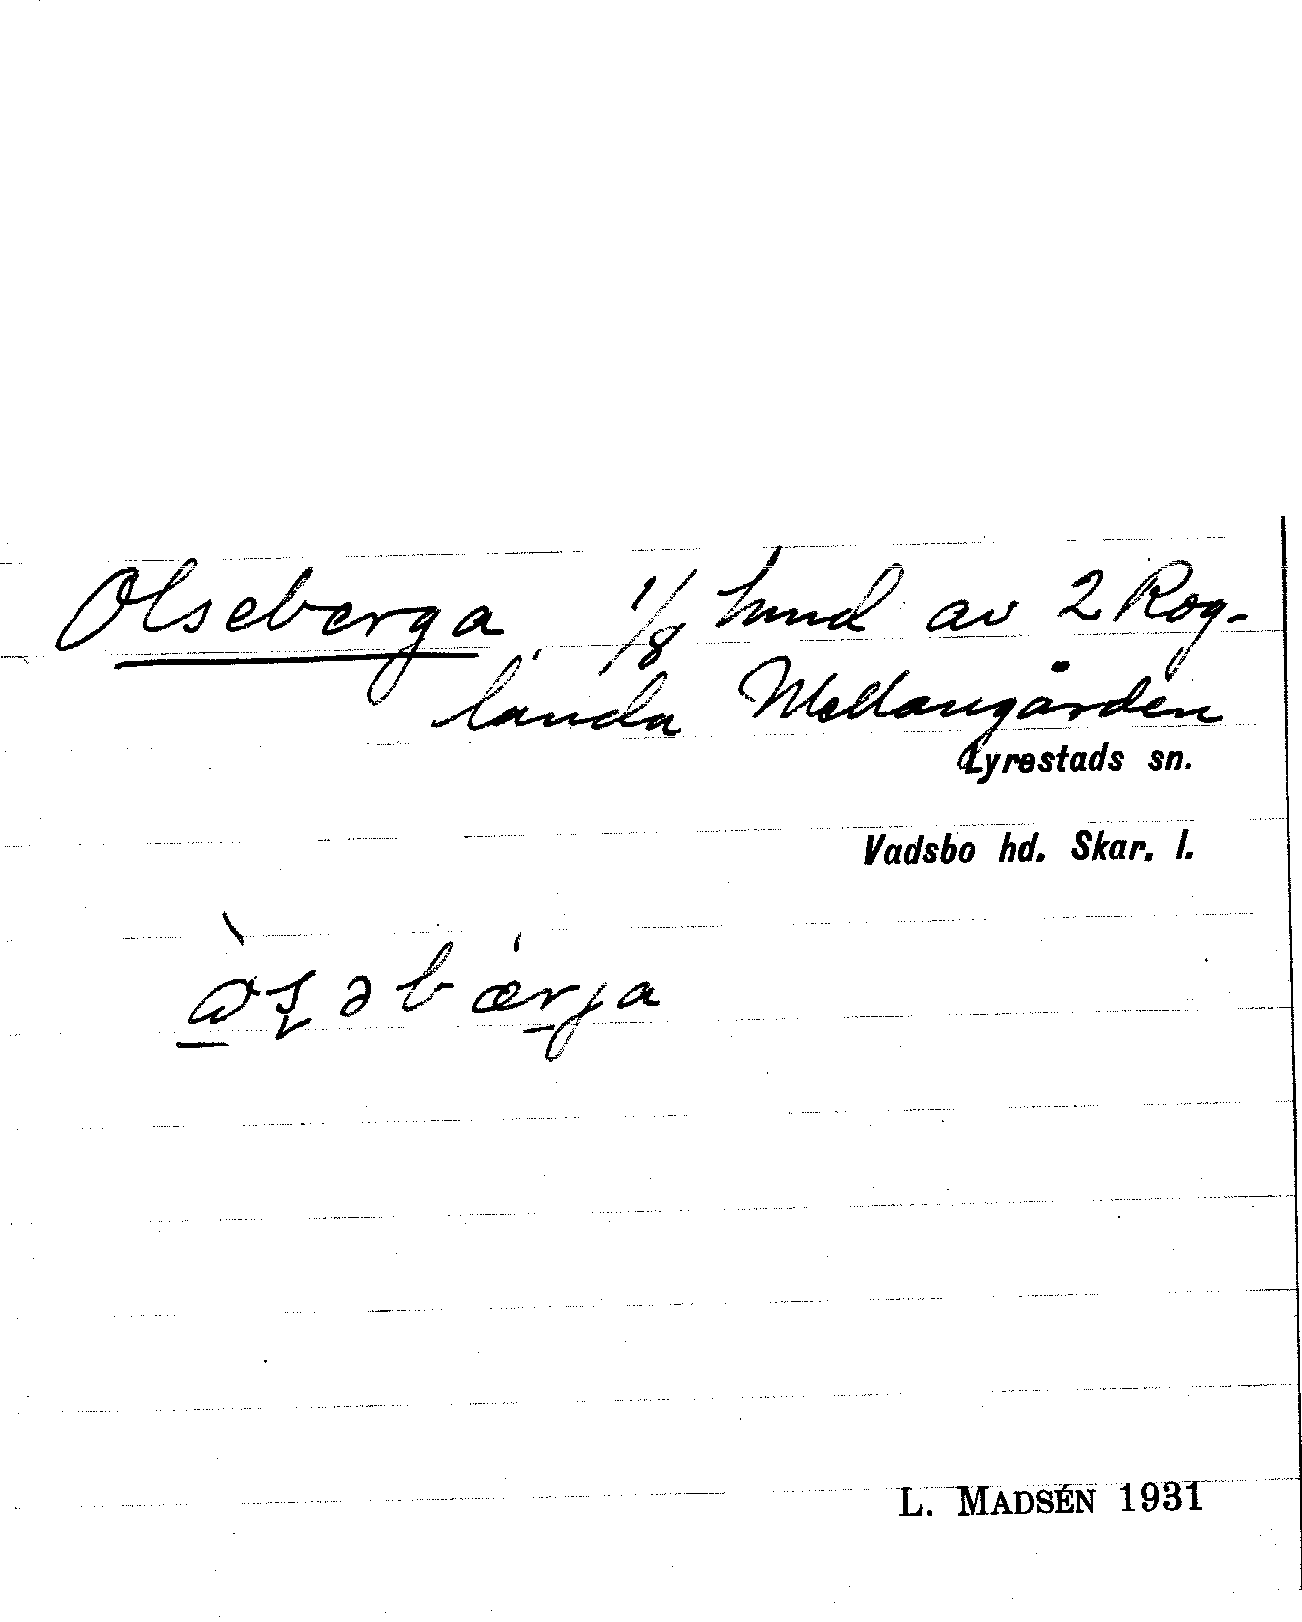 Olseberga 1/8 hmd av 2 Rog-
landa Mellangården
Lyrestads sn.
Vadsbo hd. Skar. l.
L. MADSÉN 1931